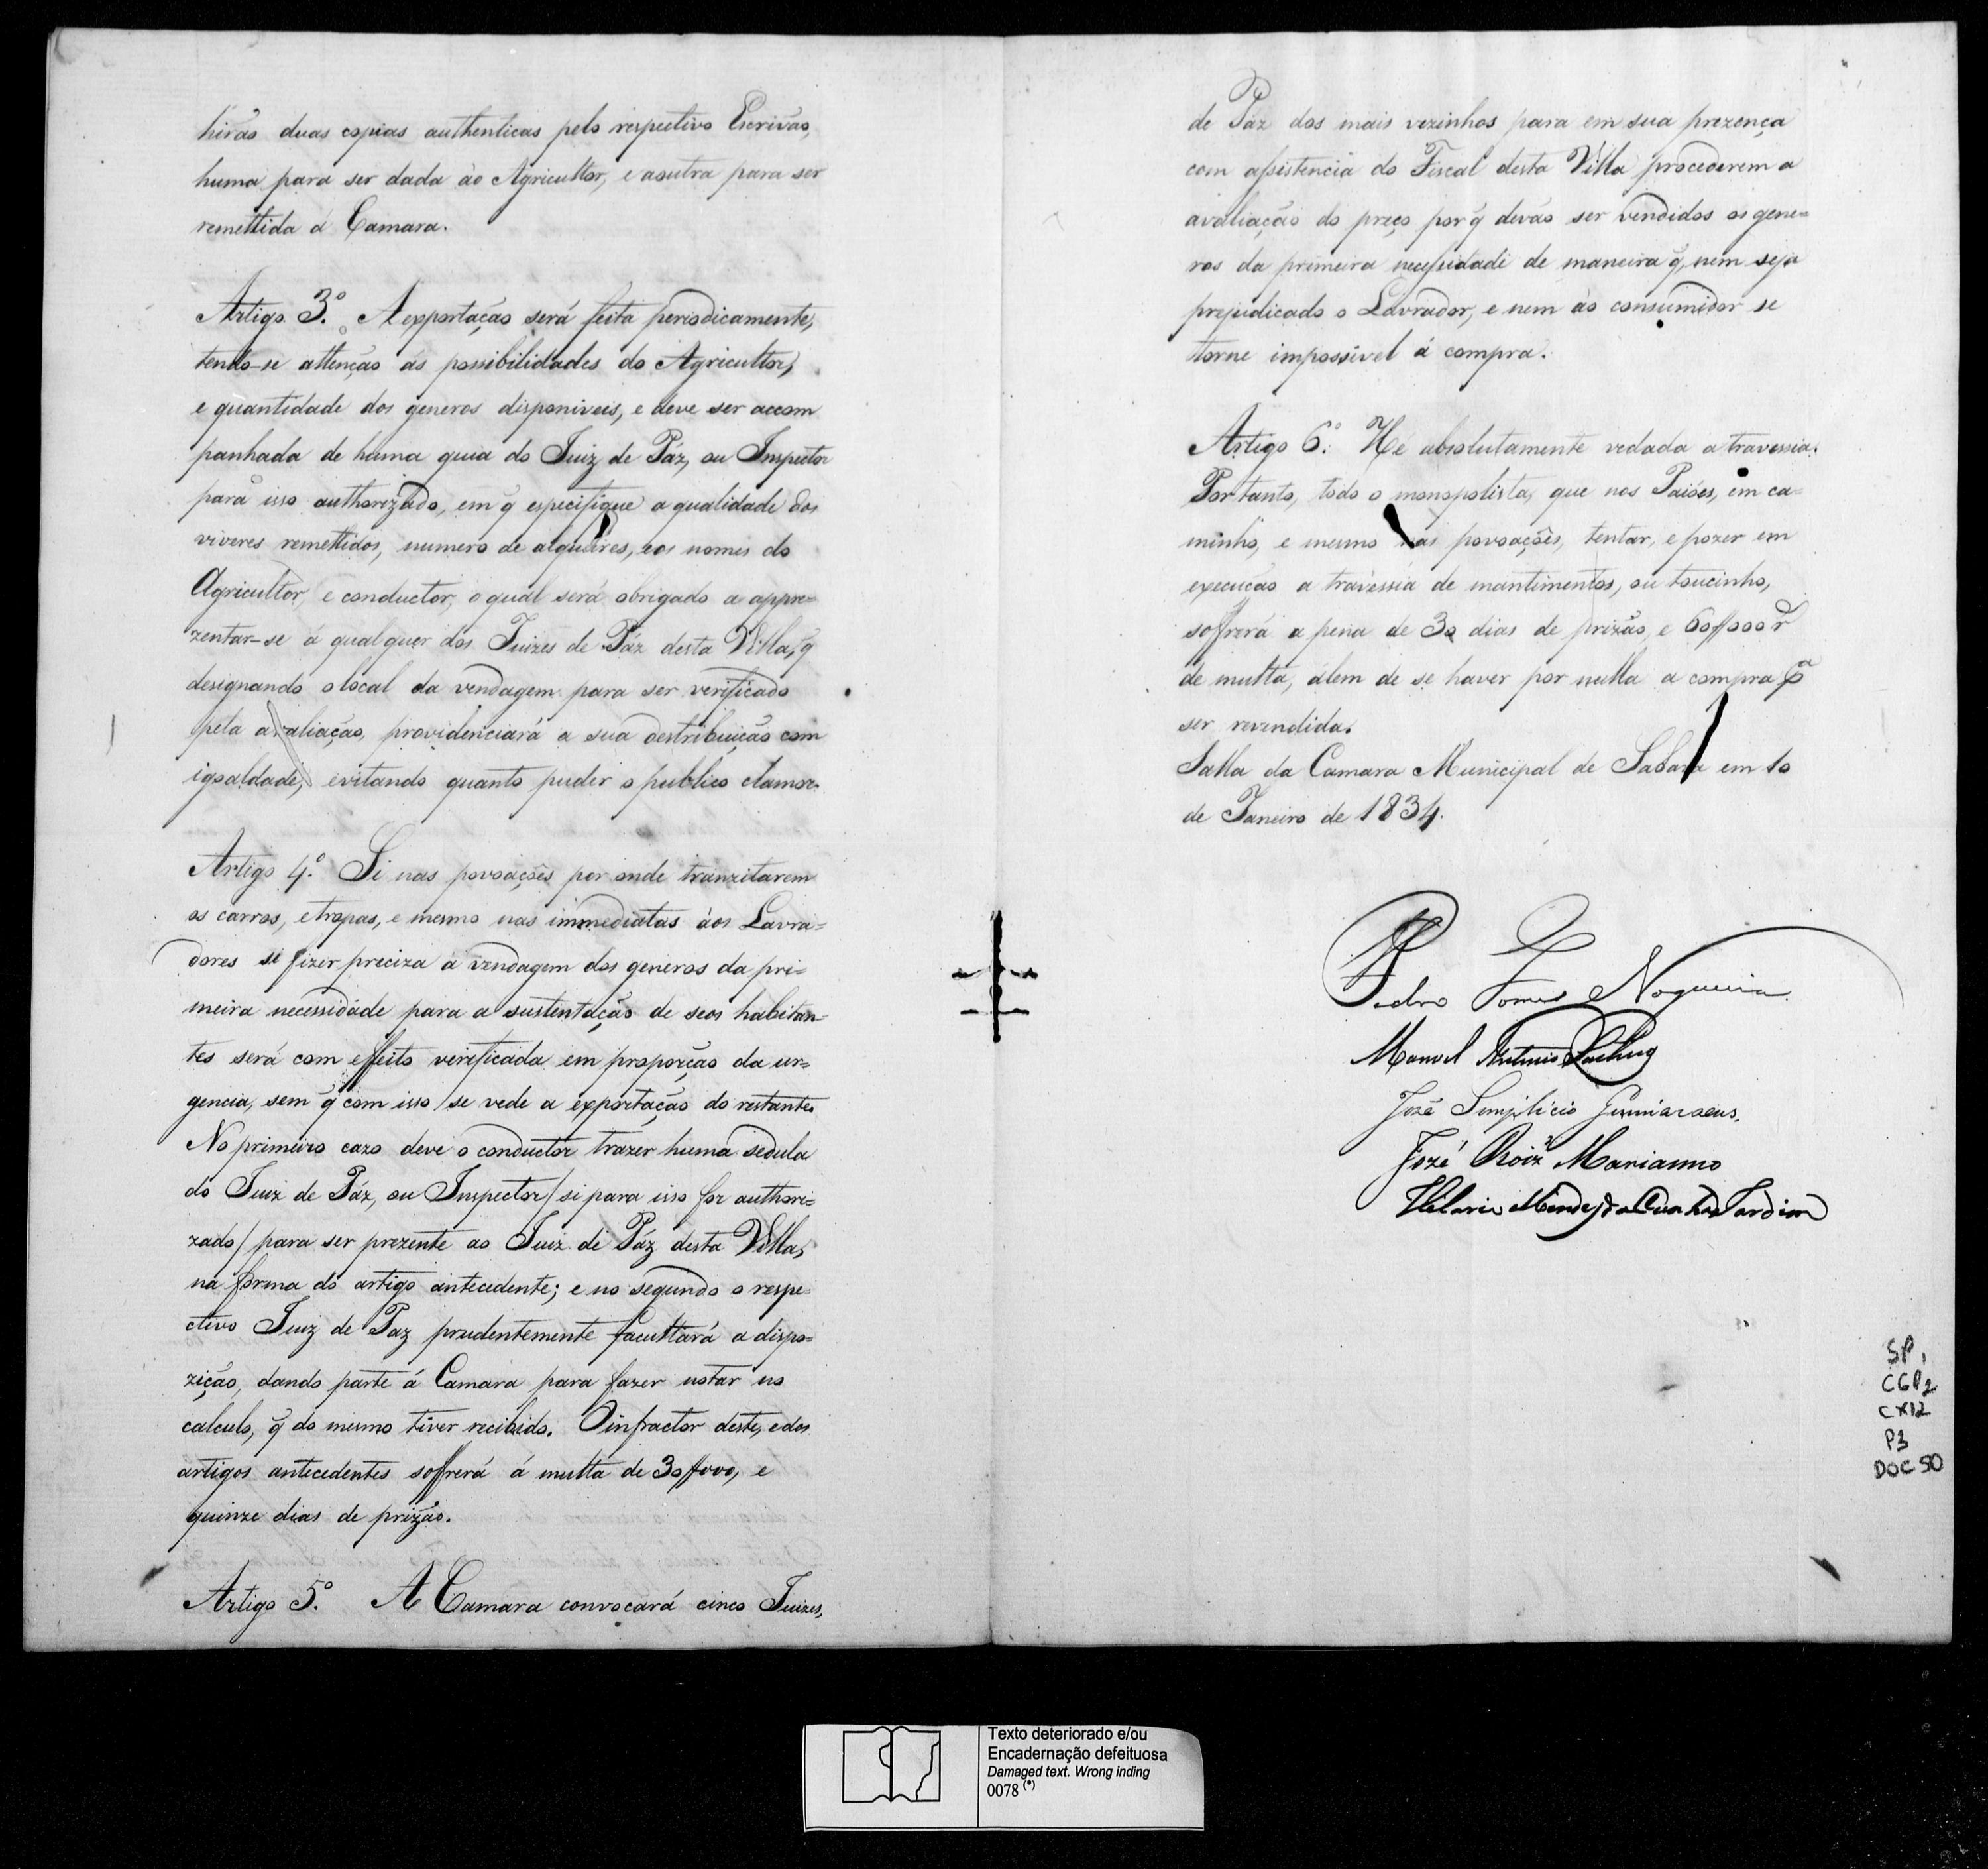 hirão duas copias authenticas pelo respectivo Escrivão,
huma para ser dada áo Agricultor, e a outra para ser
remettida á Camara.
Artigo 3.º A exportação será feita periodicamente,
tendo-se attenção ás possibilidades do Agricultor,
e quantidade dos generos disponiveis, e deve ser accom
panhada de huma guia do Juiz de Páz, ou Inspector
para isso authorizado, em q̃ especifique a qualidade dos
viveres remettidos, numero de alqueires, e os nomes do
Agricultor, e conductor, o qual será obrigado a appre=
zentar-se á qualquer dos Juizes de Páz desta Villa, q̃
designando o local da vendagem para ser verificado
pela avaliação, providenciará a sua destribuição com
igoaldade, evitando quanto puder o publico clamor.
Artigo 4.º Si nas povoações por onde tranzitarem
os carros, e tropas, e mesmo nas immediatas áos Lavra=
dores se fizer preciza a vendagem dos generos da pri=
meira necessidade para a sustentação de seos habitan=
tes será com effeito verificada em proporção da ur=
gencia, sem q̃ com isso se vede a exportação do restante.
No primeiro cazo deve o conductor trazer huma sedula
do Juiz de Páz, ou Inspector/ si para isso for authori=
zado/ para ser prezente ao Juiz de Páz desta Villa,
na forma do artigo antecedente; e no segundo o respe=
ctivo Juiz de Paz prudentemente facultará a dispo=
zição, dando parte á Camara para fazer notar no
calculo, q̃ do mesmo tiver recibido. O infractor deste, e dos
artigos antecedentes soffrerá á multa de 30$000, e
quinze dias de prizão.
Artigo 5.º A Camara convocará cinco Juizes,
de Páz dos mais vezinhos para em sua prezença
com assistencia do Fiscal desta Villa procederem a
avaliação do preço por q̃ devão ser vendidos os gene=
ros da primeira necessidade de maneira q̃, nem seja
prejudicado o Lavrador, e nem áo consumidor se
torne impossivel á compra.
Artigo 6.º He absolutamente vedada a travessia.
Portanto, todo o monopolista, que nos Paióes, em ca=
minho, e mesmo nas povoações, tentar, e pozer em
execução a travessia de mantimentos, ou toucinho,
soffrerá a pena de 30 dias de prizão, e 60$000 r̃
de multa, álem de se haver por nulla a compra p̃
ser revendida.
Salla da Camara Municipal de Sabará em 10
de Janeiro de 1834.
Pedro Gomes Nogueira
Manoel Antonio
José Simplicio Guimaraens,
Jozé Roiz Marianno
Hilario Mendes da Cunha Jardim
SP1
CGP2
CX12
P3
DOC 50
Texto deteriorado e/ou
Encadernação defeituosa
Damaged text. Wrong inding
0078 (*)